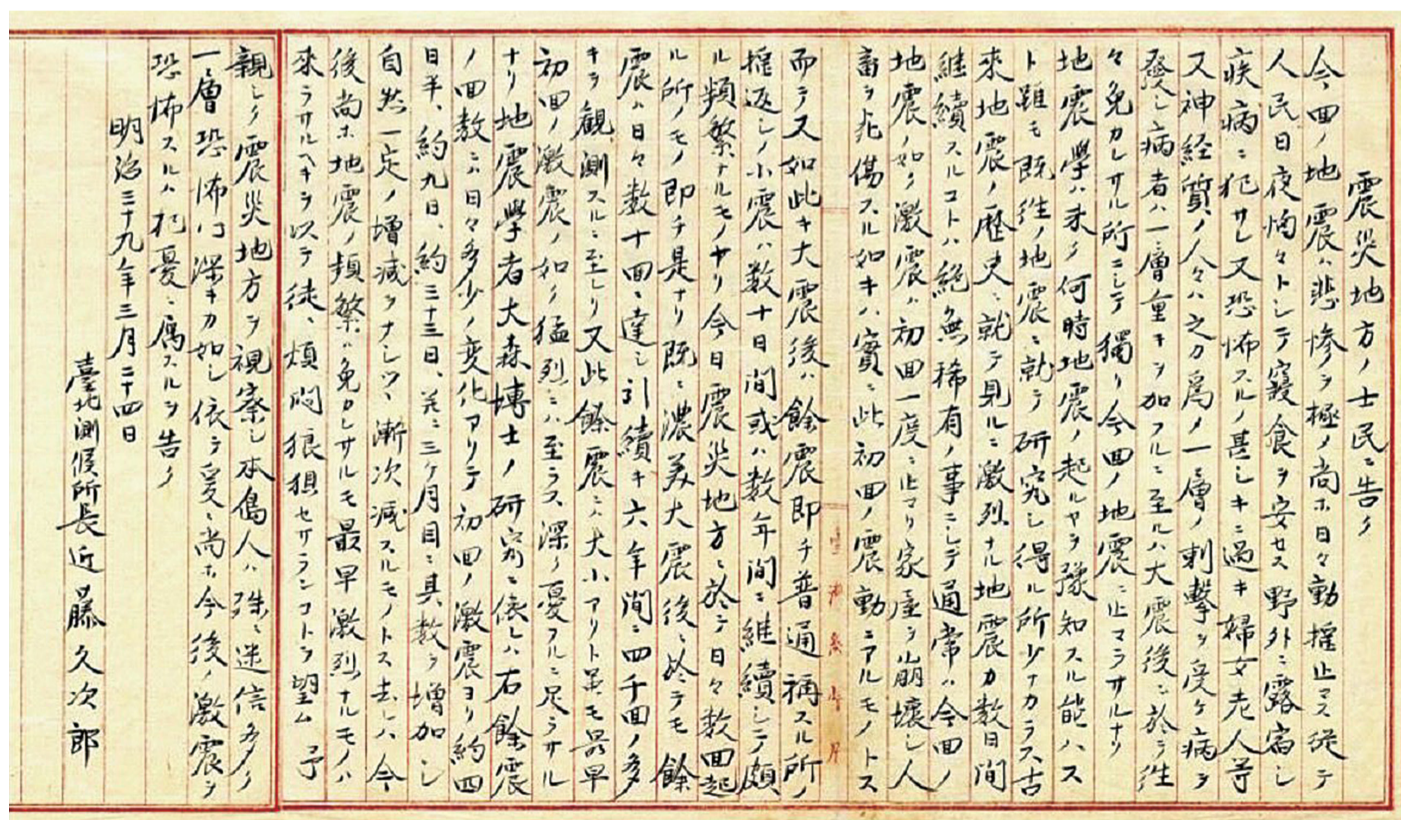 震災地方ノ士民ニ告ク
今回ノ地震ハ悲惨ヲ極メ尚ホ日々動揺止マス従テ
人民日夜恟々トシテ寝食ヲ安セス野外ニ露宿シ
疾病ニ犯サレ又恐怖スルノ甚シキニ過キ婦女老人等
又神経質ノ人々ハ之カ為メ一層ノ刺撃ヲ受ケ病ヲ
発シ病者ハ一層重キヲ加フルニ至ルハ大震後ニ於テ往
々免カレサル所ニシテ獨リ今回ノ地震ニ止マラサルナリ
地震學ハ未タ何時地震ノ起ルヤヲ豫知スル能ハス
ト雖モ既往ノ地震ニ就テ研究シ得ル所少ナカラス古
來地震ノ歴史ニ就テ見ルニ激烈ナル地震カ数日間
継續スルコトハ絶無稀有ノ事ニシテ通常ハ今回ノ
地震ノ如ク激震ハ初回一度ニ止マリ家屋ヲ崩壊シ人
畜ヲ死傷スル如キハ實ニ此初回ノ震動ニアルモノトス
而テ又如此キ大震後ハ餘震即チ普通稱スル所ノ
揺返シノ小震ハ数十日間或ハ数年間ニ継續シテ頗
ル頻繁ナルモノヤリ今日震災地方ニ於テ日々数回起
ル所ノモノ即チ是ナリ既ニ濃美大震後ニ於テモ餘
震ハ日々数十回ニ達シ引續キ六年間ニ四千回ノ多
キヲ観測スルニ至レリ又此餘震ニハ大小アリト虽モ最早
初回ノ激震ノ如ク猛烈ニハ至ラス深ク憂フルニ足ラサル
ナリ地震學者大森博士ノ研究ニ依レハ右餘震
ノ回数ニハ日々多少ノ変化アリテ初回ノ激震ヨリ約四
日半、約九日、約三十三日、並ニ三ケ月目ニ其数ヲ増加シ
自然一定ノ增減ヲナシツヽ漸次減スルモノトス去レハ今
後尚ホ地震ノ頻繁ハ免カレサルモ最早激烈ナルモノハ
来ラサルヘキヲ以テ徒ニ煩悶狼狽セサランコトヲ望ム予
親シク震災地方ヲ視察シ本島人ハ殊ニ迷信多ク
一層恐怖ノ深キカ如シ依テ爰ニ尚ホ今後ノ激震ヲ
恐怖スルハ杞憂ニ属スルヲ告ク
明治三十九年三月二十四日
臺北測候所長近藤久次郎